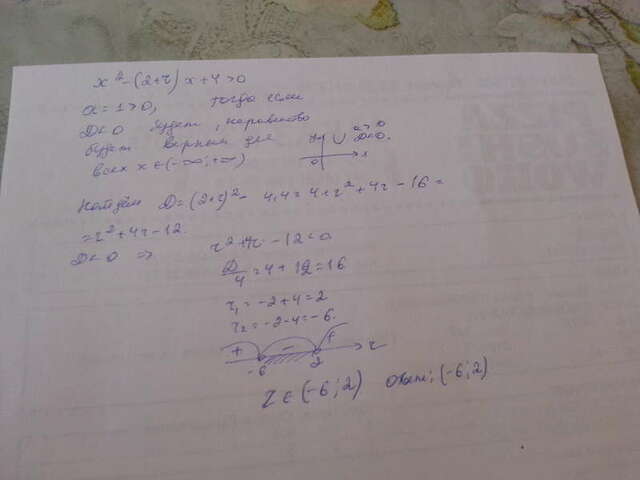 x² - (2+r) x + 4 > 0
a = 1 > 0, тогда если
D < 0 будет, неравенство
будет верным для
всех x ∈ (-∞; +∞)
y a > 0
D < 0.
0 x
Найдём D = (2+r)² - 4·4 = 4 + r² + 4r - 16 =
= r² + 4r - 12.
D < 0 => r² + 4r - 12 < 0
D/4 = 4 + 12 = 16
r₁ = -2 + 4 = 2
r₂ = -2 - 4 = -6.
+ - + r
-6 2
r ∈ (-6; 2) Ответ: (-6; 2)